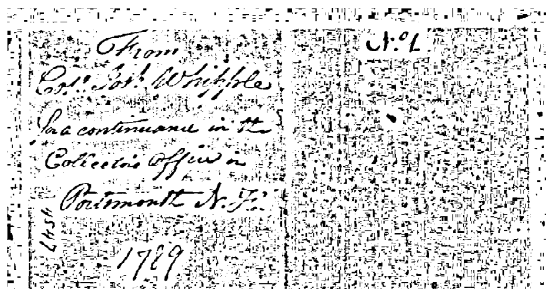 From
Col. Jos. Whipple
for a continuance in the
Collector's office in
Portsmouth N. H.
1789
No. 1